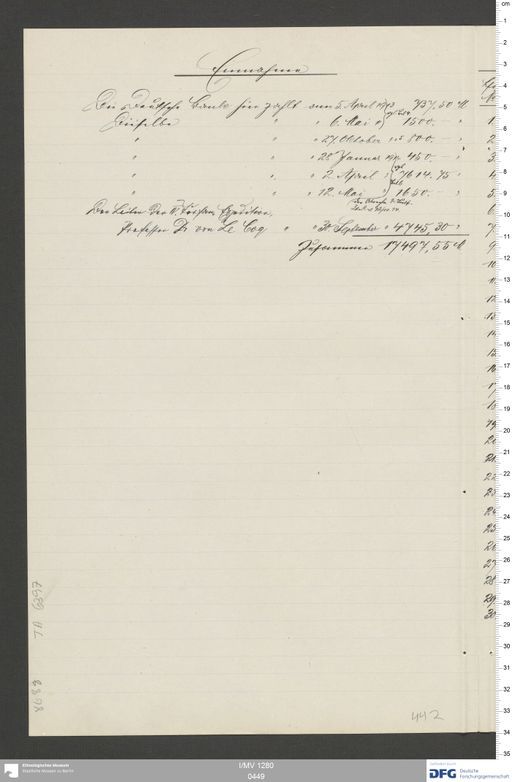 Einnahme
Die Deutsche Bank hier zahlt am 5. April 1913 737,50 M
Dieselbe " " 6. Mai " 1500.- "
" " " 27. Oktober " 800.- "
" " " 28. Januar 1914 450.- "
" " " 2. April " 7614.75 "
" " " 12. Mai " 1650.- "
Der Leiter der IV. Turfan Expedition,
Professor Dr. von Le Coq " " 30 September " 4745,30 "
Zusammen 17497,55 M
TA 6397
442
Ethnologisches Museum
Staatliche Museen zu Berlin
I/MV 1280
0449
DFG Deutsche
Forschungsgemeinschaft